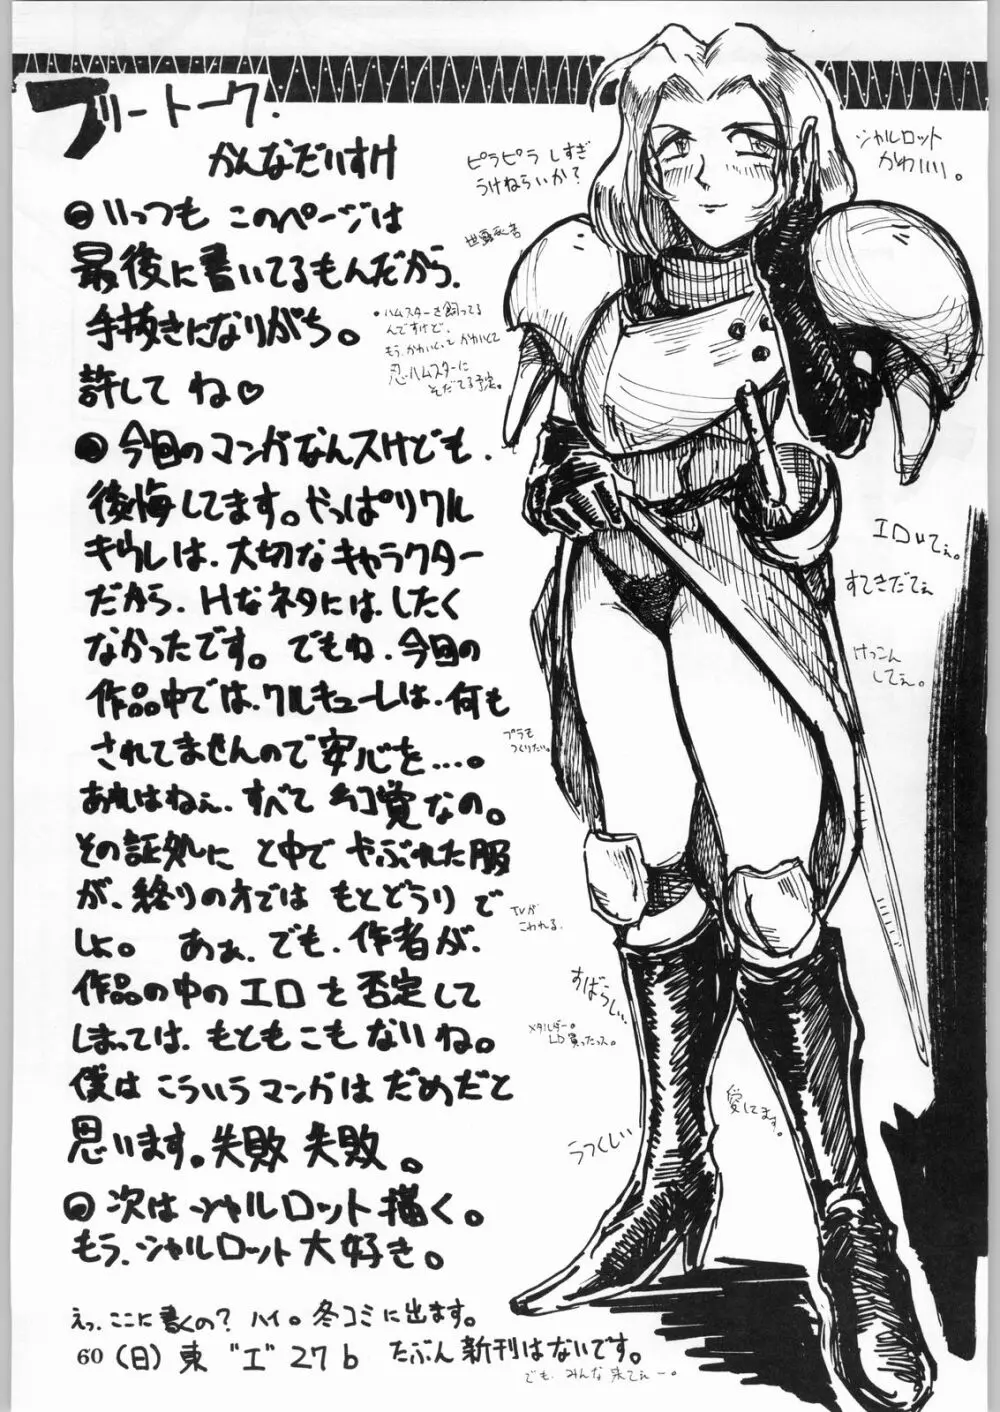 フリートーク.
かんなだいすけ
いっつも このページは
最後に書いてるもんだから、
手抜きになりがち。
許して ね♡
今回のマンガなんスけども、
後悔してます。やっぱりワル
キウレは、大切なキャラクター
だから、Hなネタには、したく
なかったです。でもね、今回の
作品中では、ワルキューレは、何も
されてませんので安心を…。
あれはねぇ、すべて 幻覚なの。
その証処に と中で やぶれた服
が、終りの方では もとどうり で
しょ。 あぁ、でも、作者が、
作品の中のエロ を 否定して
しまっては、もともこもないね。
僕は こういうマンガは だめだと
思います。失敗 失敗。
次は シャルロット描く。
もう、シャルロット大好き。
えっ、ここに書くの? ハイ。冬コミに出ます。
60 (日) 東 "エ" 27b たぶん新刊はないです。
でも、みんな来てぇー。
ピラピラ しすぎ
うけねらいか?
シャルロット
かわいい。
・ハムスターを飼ってる
んですけど、
もう、かわいくて かわいくて
忍ハムスターに
そだてる予定。
すてきだてぇ
けっこん
してぇ。
プラも
つくりたい。
TVが
こわれる.
すばらしい、
メタルダー。
LD買ったっス。
愛してます。
うつくしい